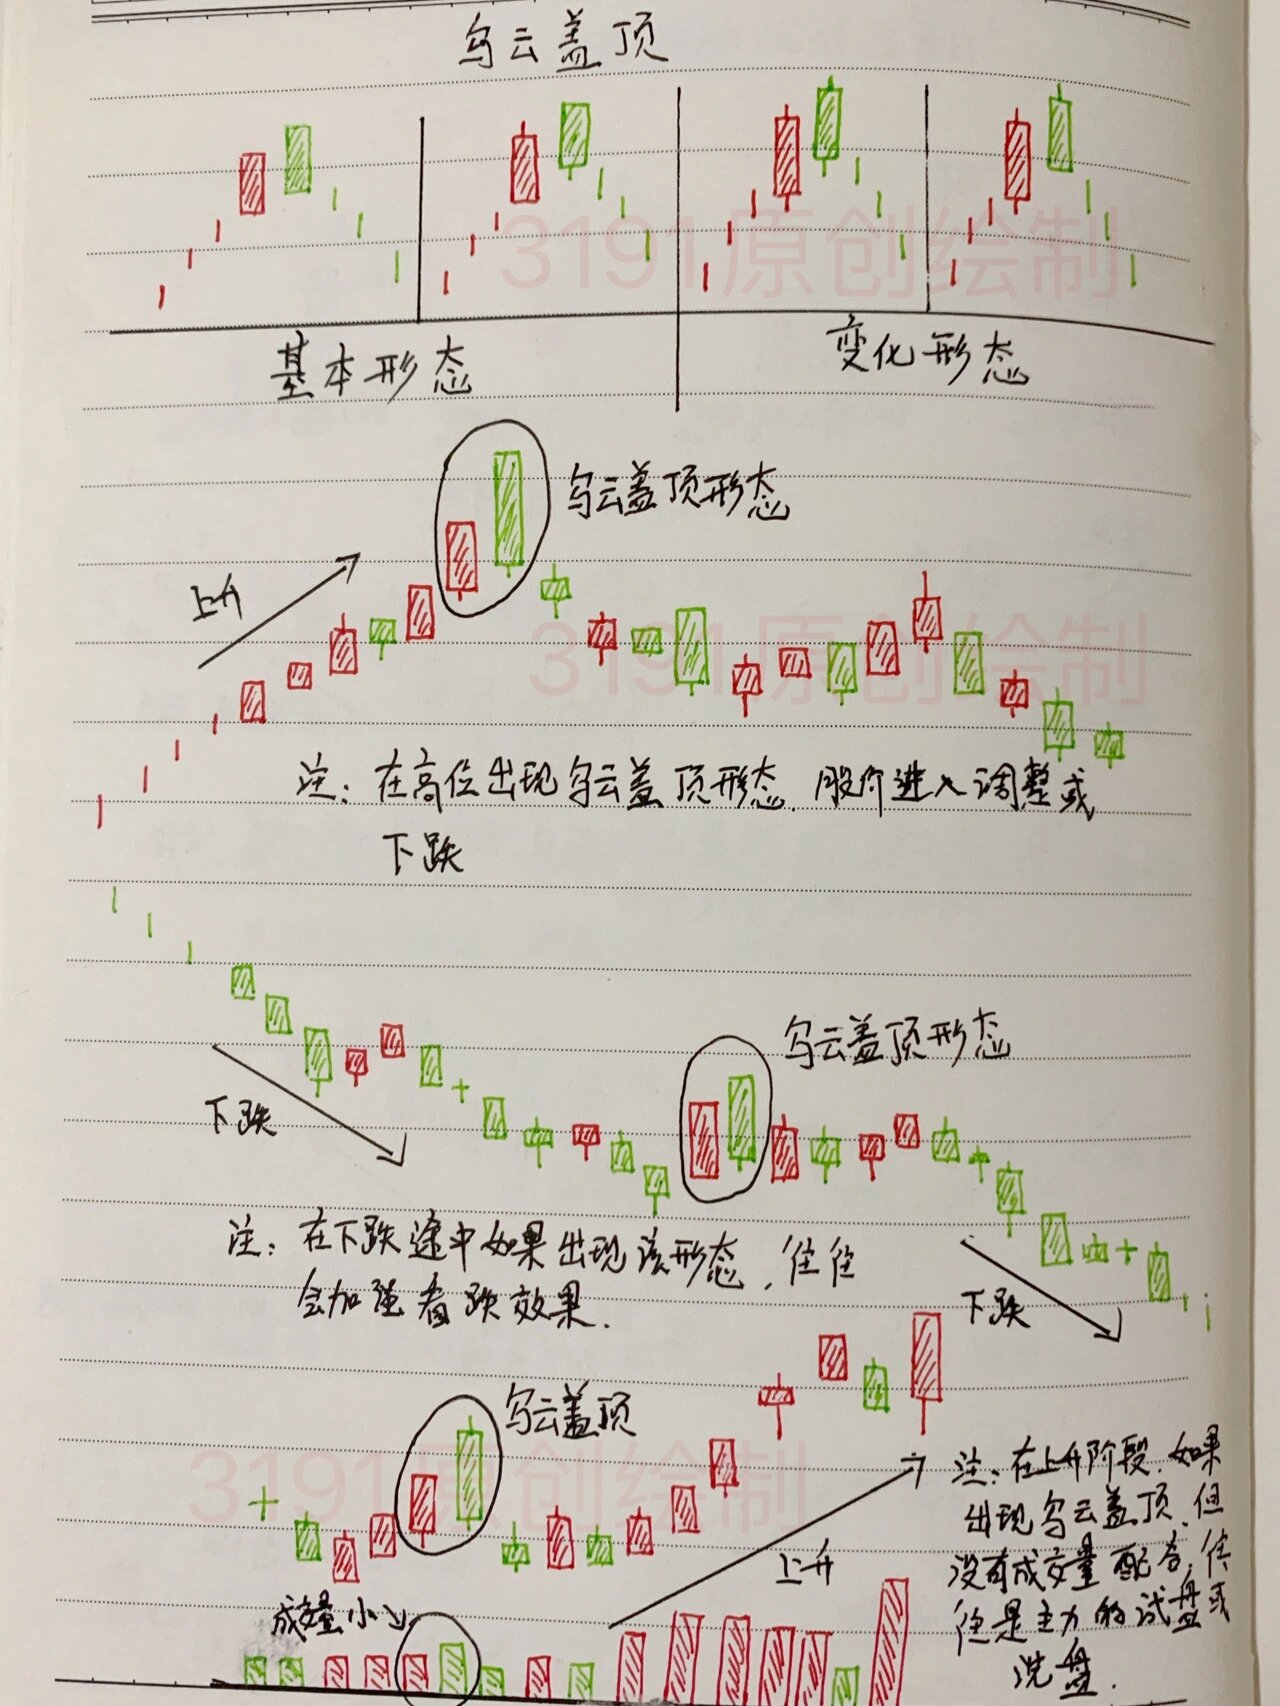 乌云盖顶
3191原创绘制
基本形态
变化形态
乌云盖顶形态
上升
3191原创绘制
注：在高位出现乌云盖顶形态，股价进入调整或
下跌
乌云盖顶形态
下跌
注：在下跌途中如果出现该形态，往往
会加强看跌效果.
下跌
乌云盖顶
3191原创绘制
注：在上升阶段，如果
出现乌云盖顶，但
没有成交量配合，往
往是主力的试盘或
洗盘.
上升
成交量小